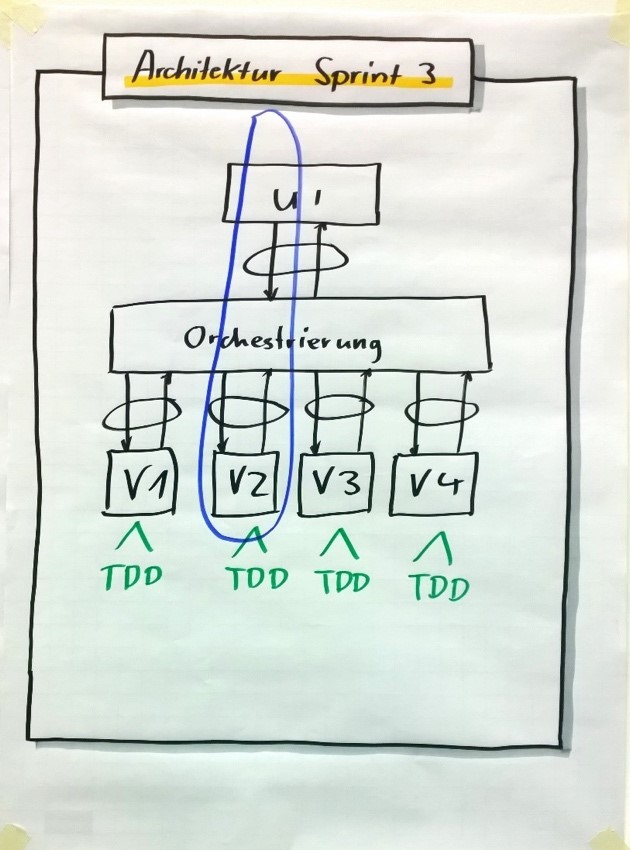 Architektur Sprint 3
UI
Orchestrierung
V1 V2 V3 V4
TDD TDD TDD TDD